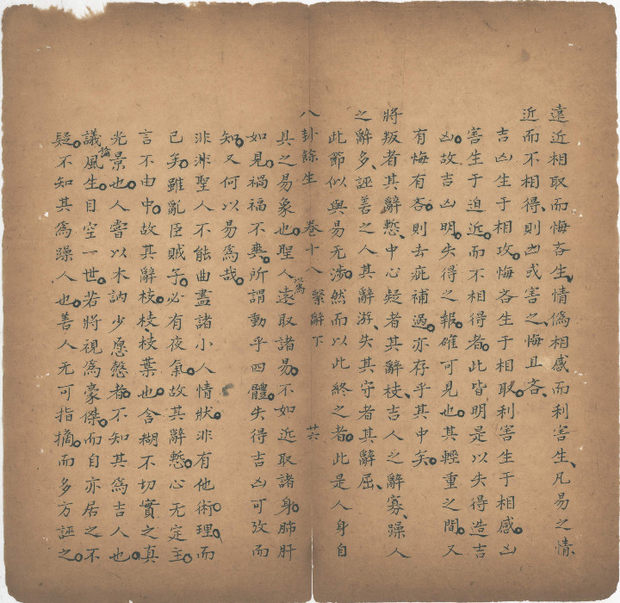 遠近相取而悔吝生、情偽相感而利害生、凡易之情、
近而不相得、則凶或害之、悔且吝、
吉凶生于相攻。悔吝生于相取。利害生于相感。凶
害生于迫近。而不相得者。此皆明是以失得造吉
凶。故吉凶明。失得之報。確可見也。其輕重之間。又
有悔有吝。則去疵補過。亦存乎其中矣。
將叛者其辭慙、中心疑者其辭枝、吉人之辭寡、躁人
之辭多、誣善之人其辭游、失其守者其辭屈
此節似與易无涉。然而以此終之者。此是人身自
八卦餘生 卷十八 繫辭下 廿六
具之易象也。聖人以為遠取諸易。不如近取諸身。肺肝
如見。禍福不爽。所謂動乎四體。失得吉凶可攷而
知。又何以易為哉。
非聖人不能曲盡諸小人情狀。非有他術。理而
已矣。雖亂臣賊子。必有夜氣。故其辭慙。心无定主。
言不由中。故其辭枝。枝、枝葉也。含糊不切實之真
光景也。人嘗以木訥少愿慤者。不知其為吉人也。
議論風生。目空一世。若將視為豪傑。而自亦居之不
疑。不知其為躁人也。善人无可指摘。而多方誣之。